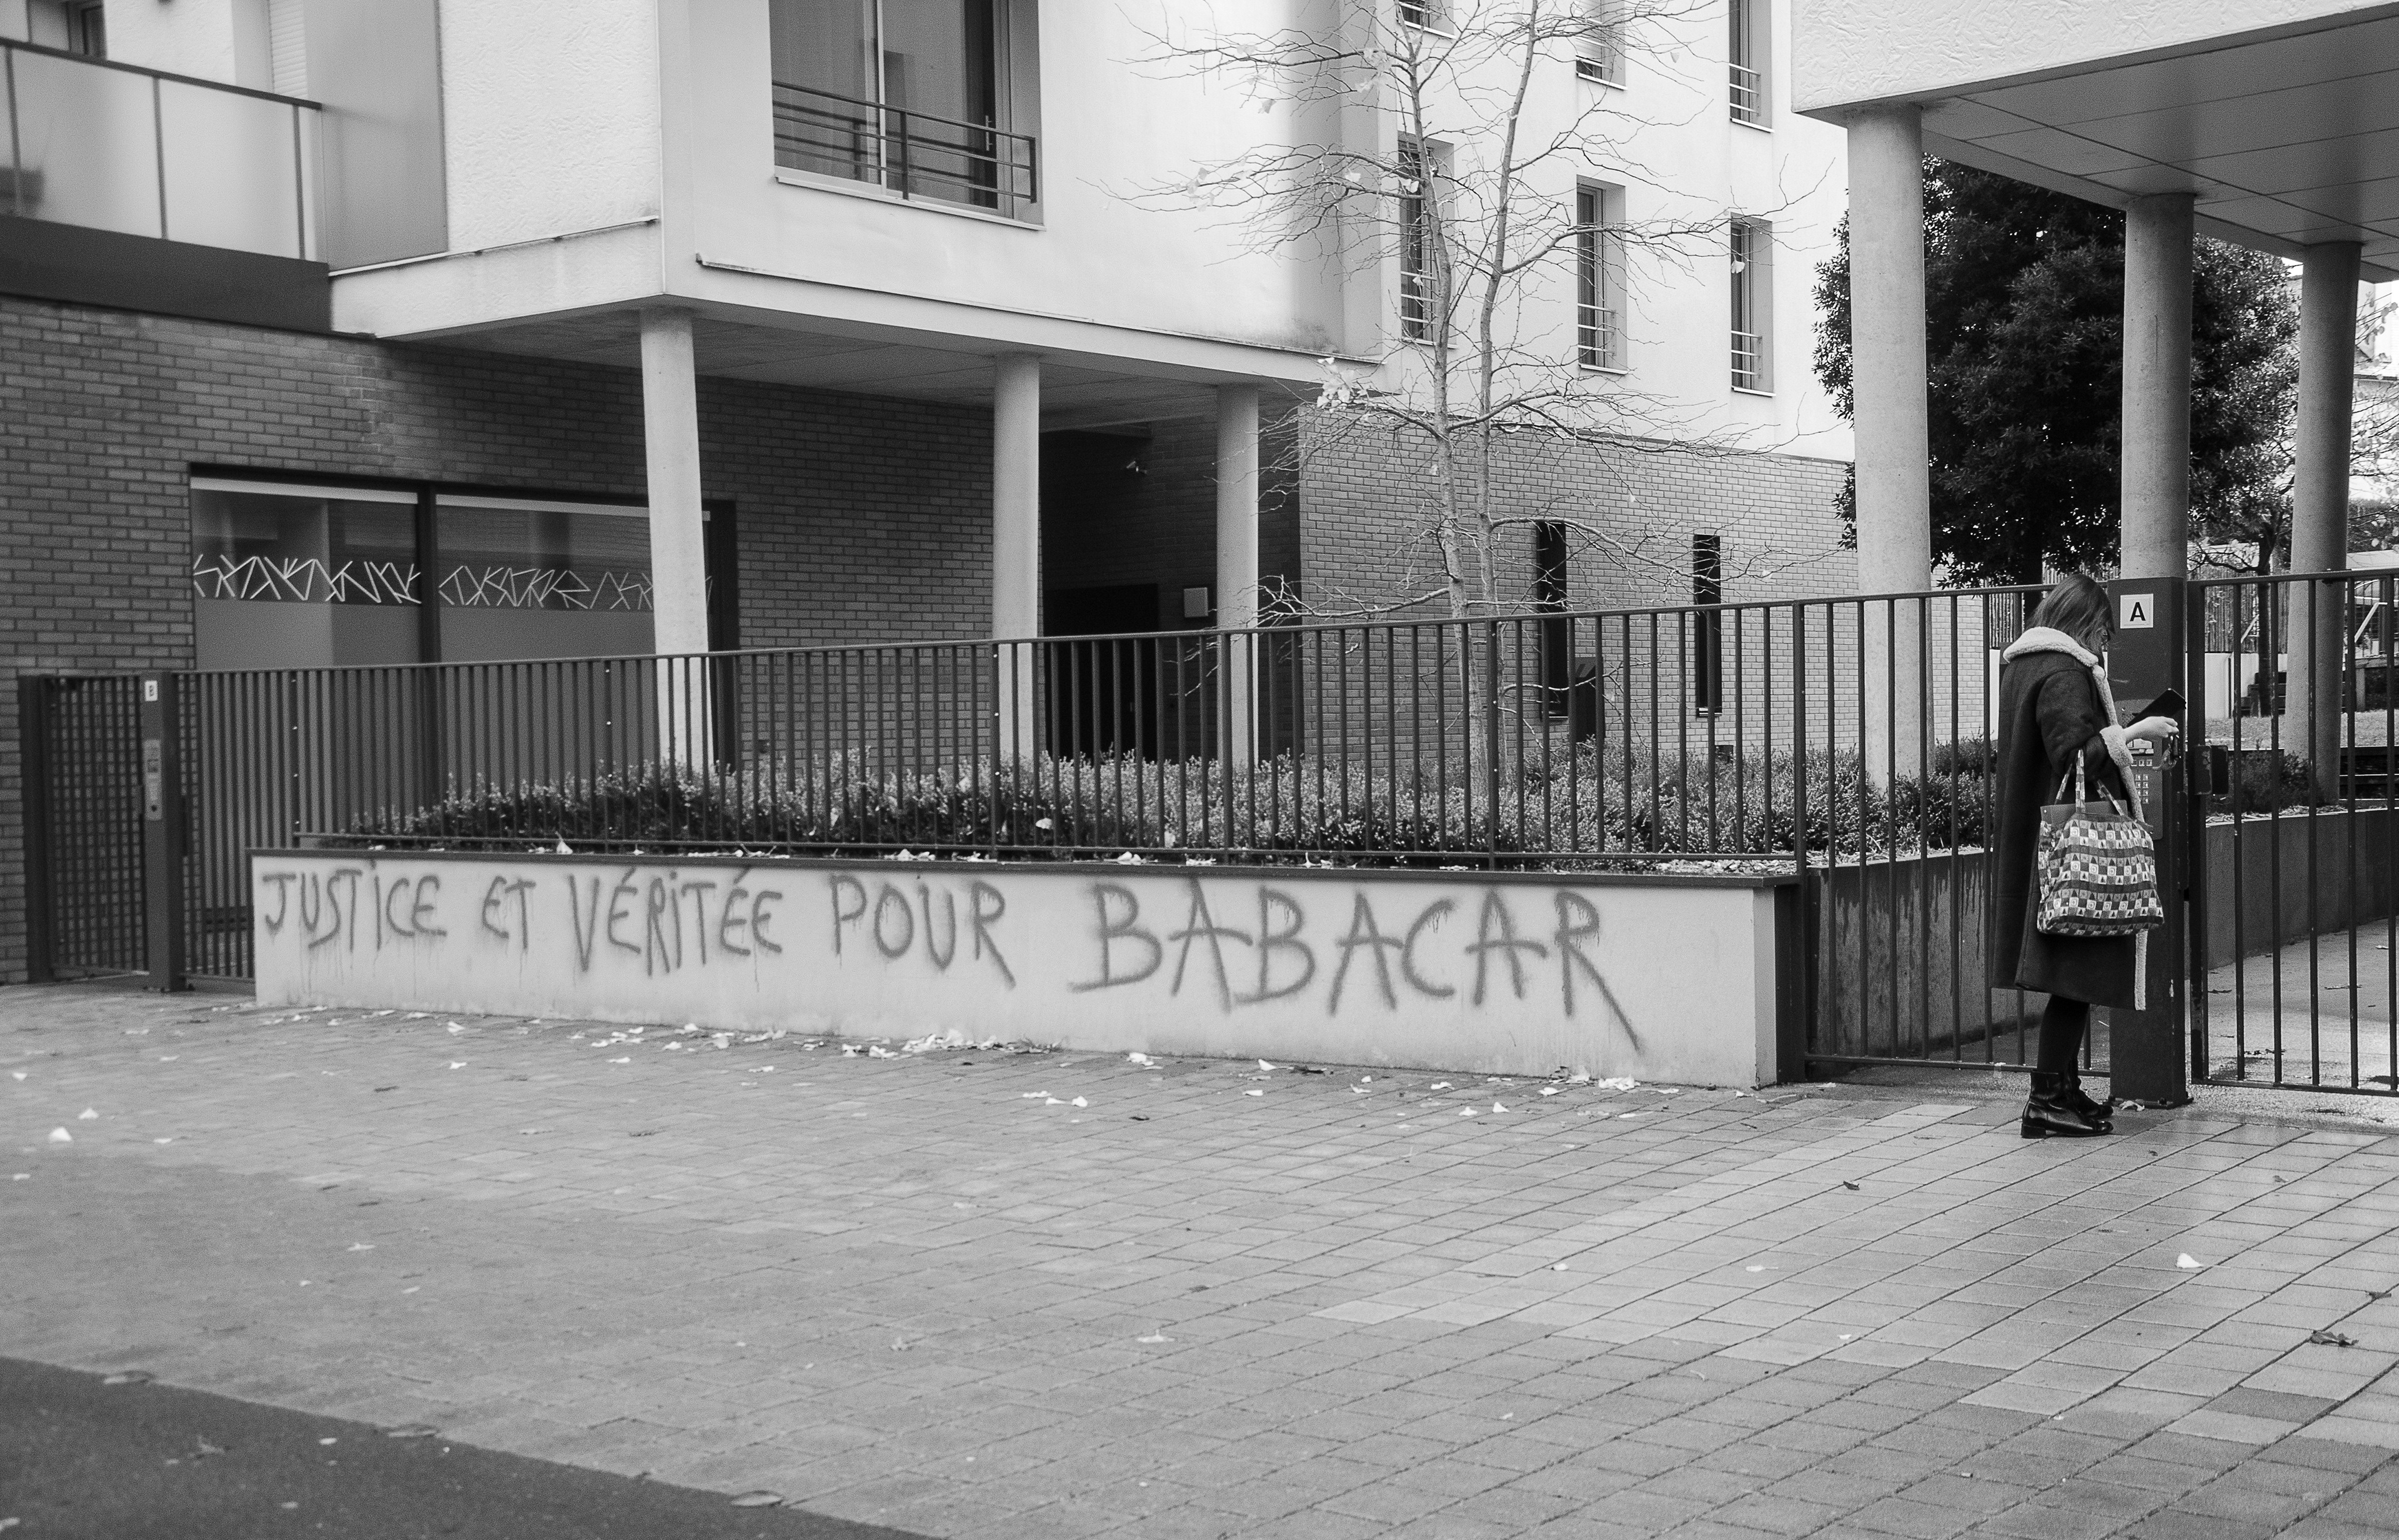 JUSTiCE ET VÉRiTÉE POUR BABACAR
A
B